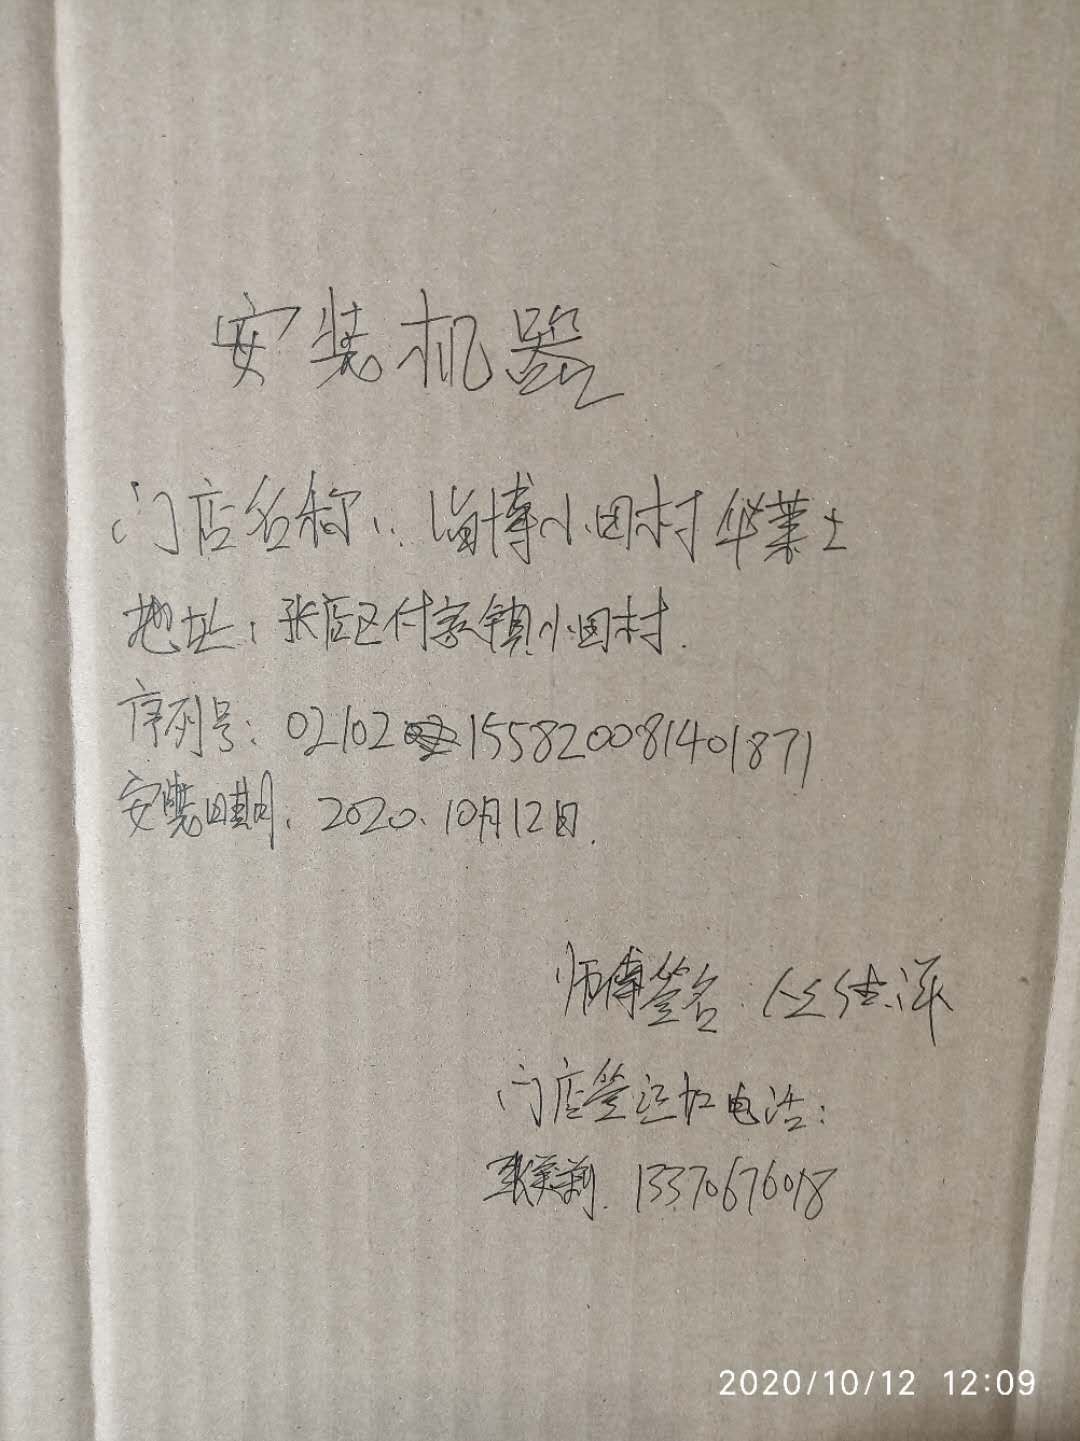 安装机器
门店名称：淄博小田村华莱士
地址：张店区付家镇小田村.
序列号：02102155820081401871
安装日期：2020.10月12日.
师傅签名：
门店签江加电话：
张美莉.13370676018
2020/10/12 12:09